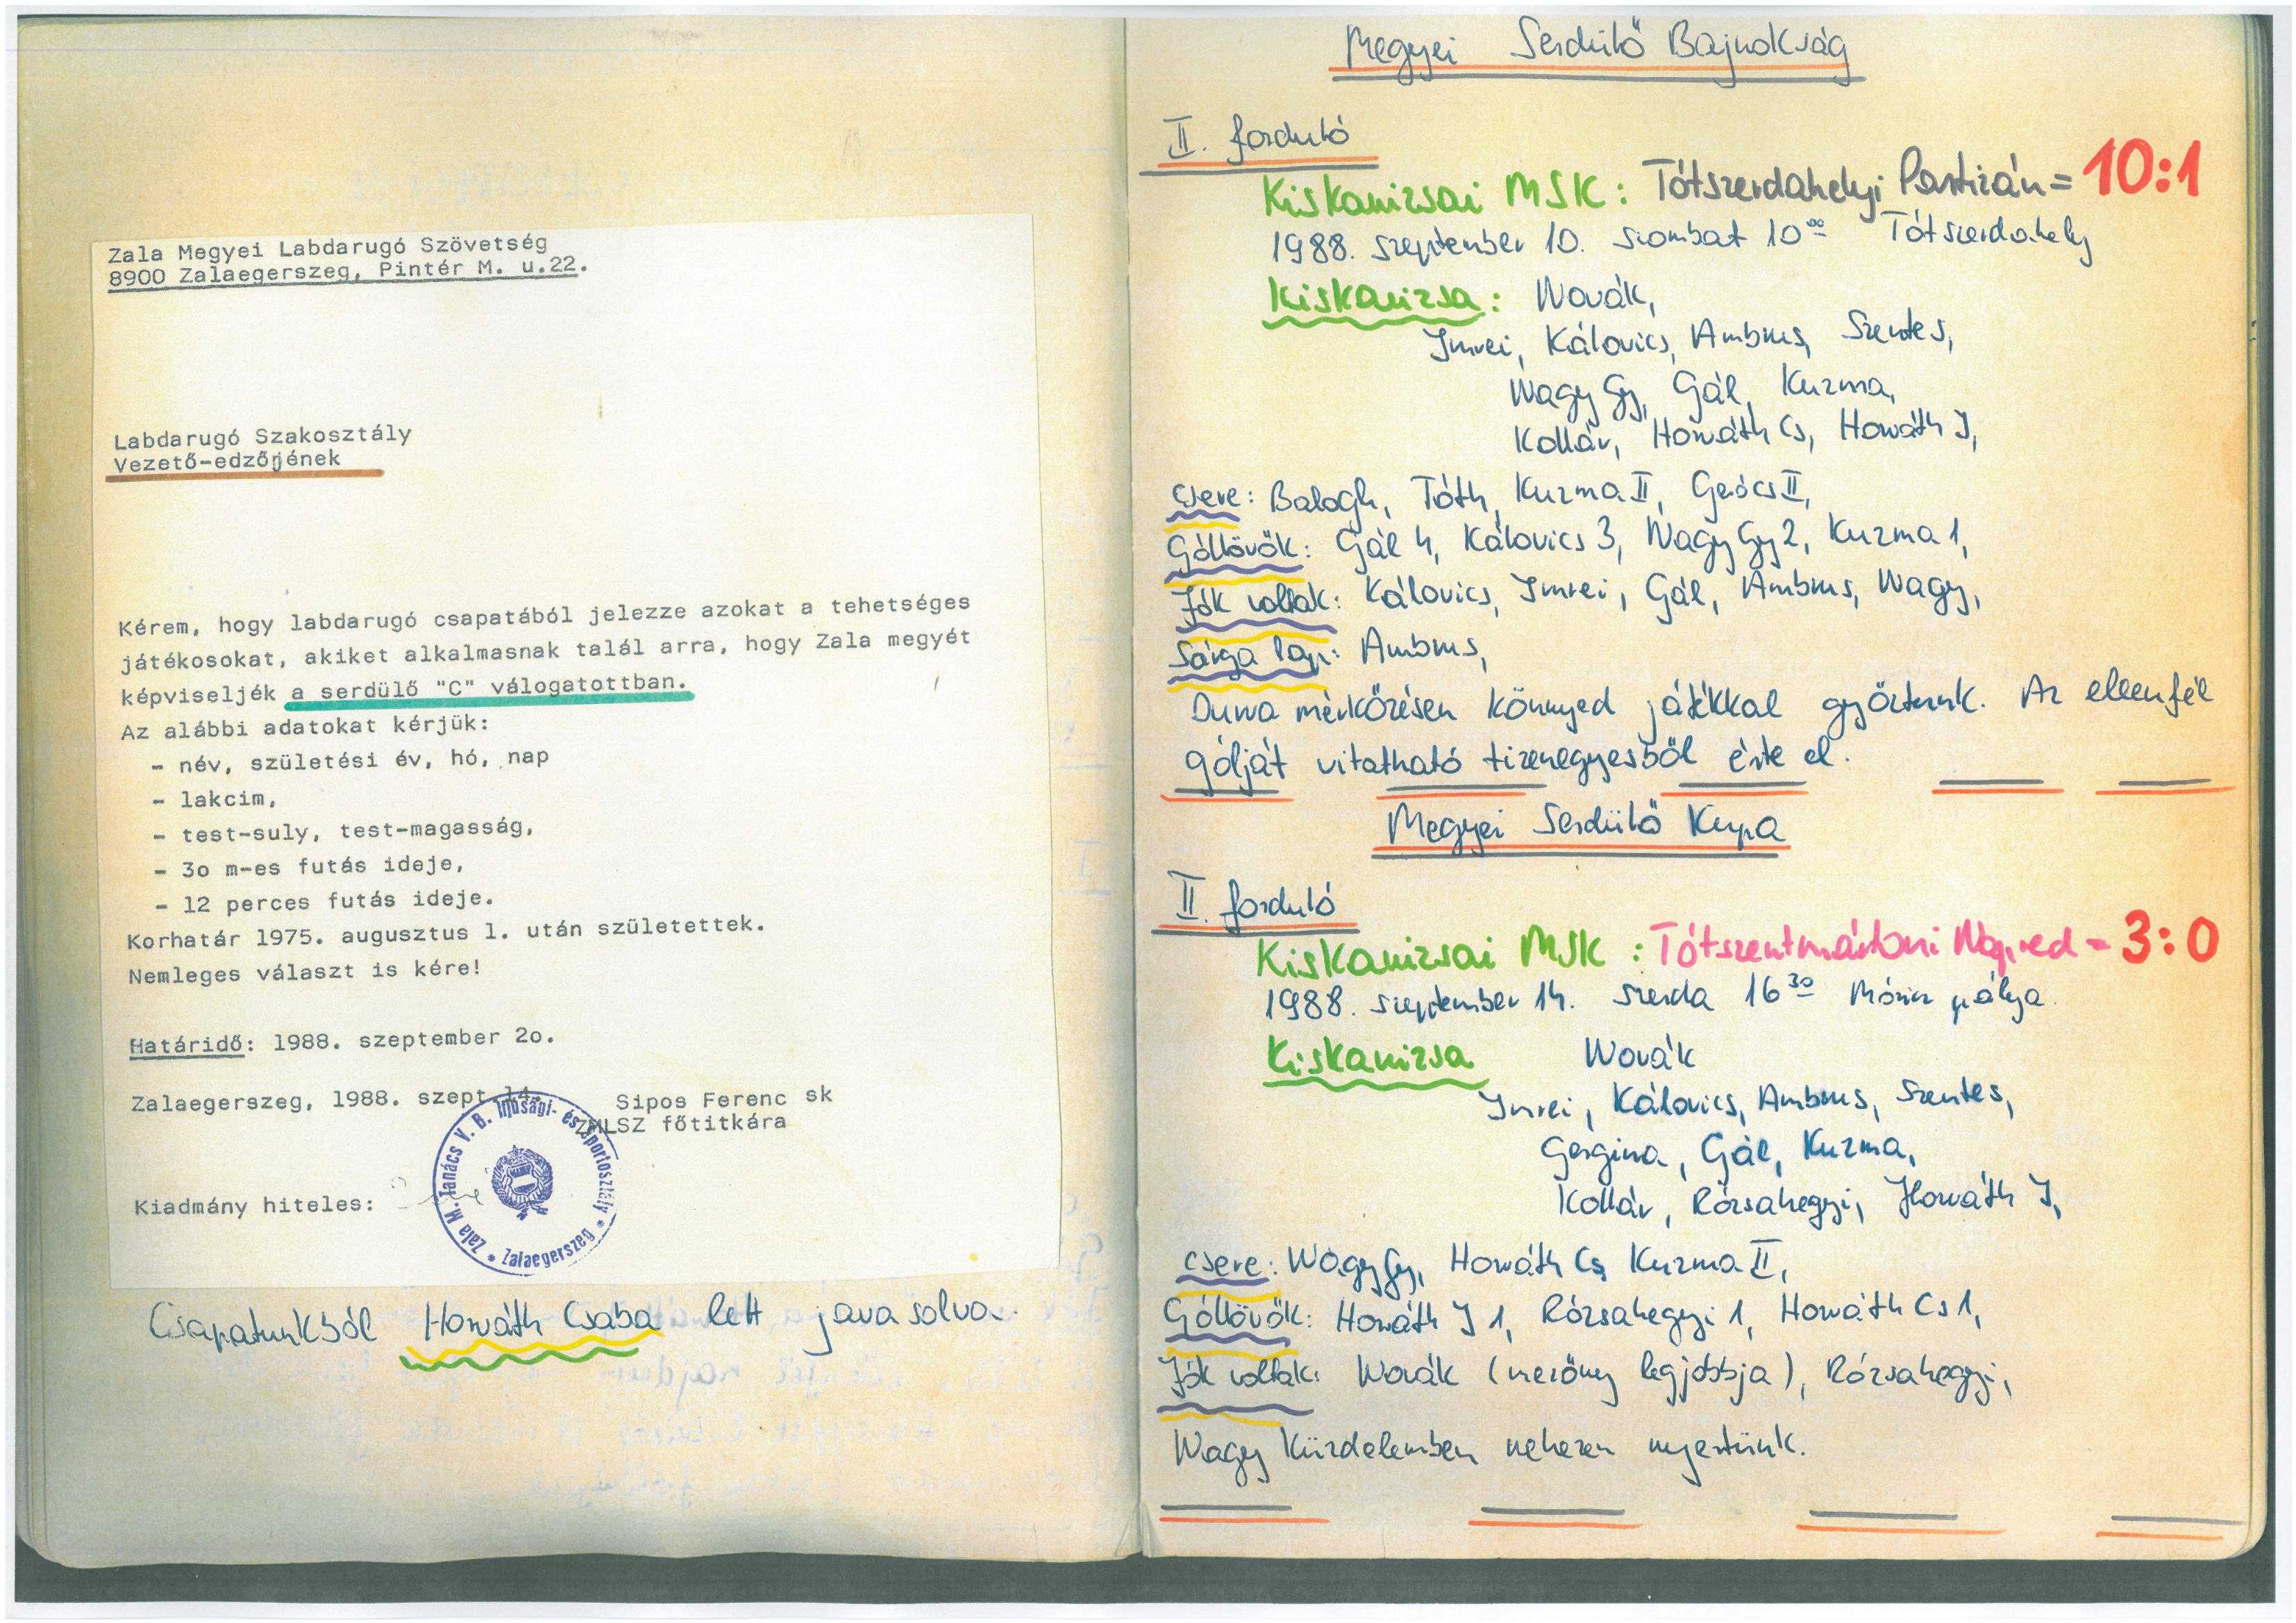 Zala Megyei Labdarugó Szövetség
8900 Zalaegerszeg, Pintér M. u.22.
Labdarugó Szakosztály
Vezető-edzőjének
Kérem, hogy labdarugó csapatából jelezze azokat a tehetséges
játékosokat, akiket alkalmasnak talál arra, hogy Zala megyét
képviseljék a serdülő "C" válogatottban.
Az alábbi adatokat kérjük:
- név, születési év, hó, nap
- lakcim,
- test-suly, test-magasság,
- 3o m-es futás ideje,
- 12 perces futás ideje.
Korhatár 1975. augusztus 1. után születettek.
Nemleges választ is kére!
Határidő: 1988. szeptember 2o.
Zalaegerszeg, 1988. szept.14.
Sipos Ferenc sk
ZMLSZ főtitkára
Kiadmány hiteles:
Zala M. Tanács V. B. Ifjusági- és Sportosztály * Zalaegerszeg *
Csapatunkból Horváth Csaba lett javasolva.
Megyei Serdülő Bajnokság
II. forduló
Kiskanizsai MSK : Tótszerdahelyi Partizán = 10:1
1988. szeptember 10. szombat 10⁰⁰ Tótszerdahely
Kiskanizsa: Novák,
Imrei, Kálovics, Ambrus, Szentes,
Nagy Gy, Gál, Kuzma,
Kollár, Horváth Cs, Horváth J,
Csere: Balogh, Tóth, Kuzma II, Gerócs II,
Góllövők: Gál 4, Kálovics 3, Nagy Gy 2, Kuzma 1,
Jók voltak: Kálovics, Imrei, Gál, Ambrus, Nagy,
Sárga lap: Ambrus,
Durva mérkőzésen könnyed játékkal győztünk. Az ellenfél
gólját vitatható tizenegyesből érte el.
Megyei Serdülő Kupa
II. forduló
Kiskanizsai MSK : Tótszentmártoni Napred = 3:0
1988. szeptember 14. szerda 16³⁰ Móricz pálya.
Kiskanizsa Novák
Imrei, Kálovics, Ambrus, Szentes,
Gergina, Gál, Kuzma,
Kollár, Rózsahegyi, Horváth J,
Csere: Nagy Gy, Horváth Cs, Kuzma II,
Góllövők: Horváth J 1, Rózsahegyi 1, Horváth Cs 1,
Jók voltak: Novák (mezőny legjobbja), Rózsahegyi,
Nagy küzdelemben nehezen nyertünk.